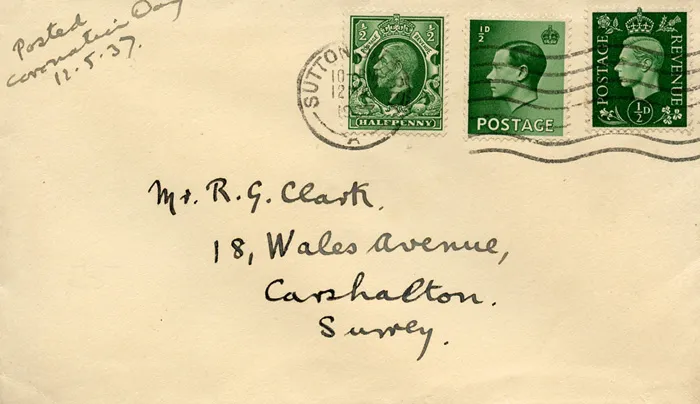 Posted
Coronation Day
12.5.37.
SUTTON
10
12
19
A
½ ½
HALFPENNY
½D
POSTAGE
POSTAGE REVENUE
½D
Mr. R. G. Clark.
18, Wales Avenue,
Carshalton.
Surrey.